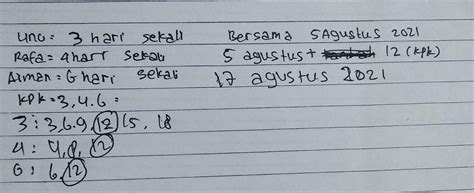 Uno = 3 hari sekali
Rafa = 4 hari sekali
Arman = 6 hari sekali
KPK = 3, 4. 6 =
3 : 3, 6. 9, 12 15, 18
4 : 4, 8, 12
6 : 6, 12
Bersama 5 Agustus 2021
5 agustus + 12 (KPK)
17 agustus 2021